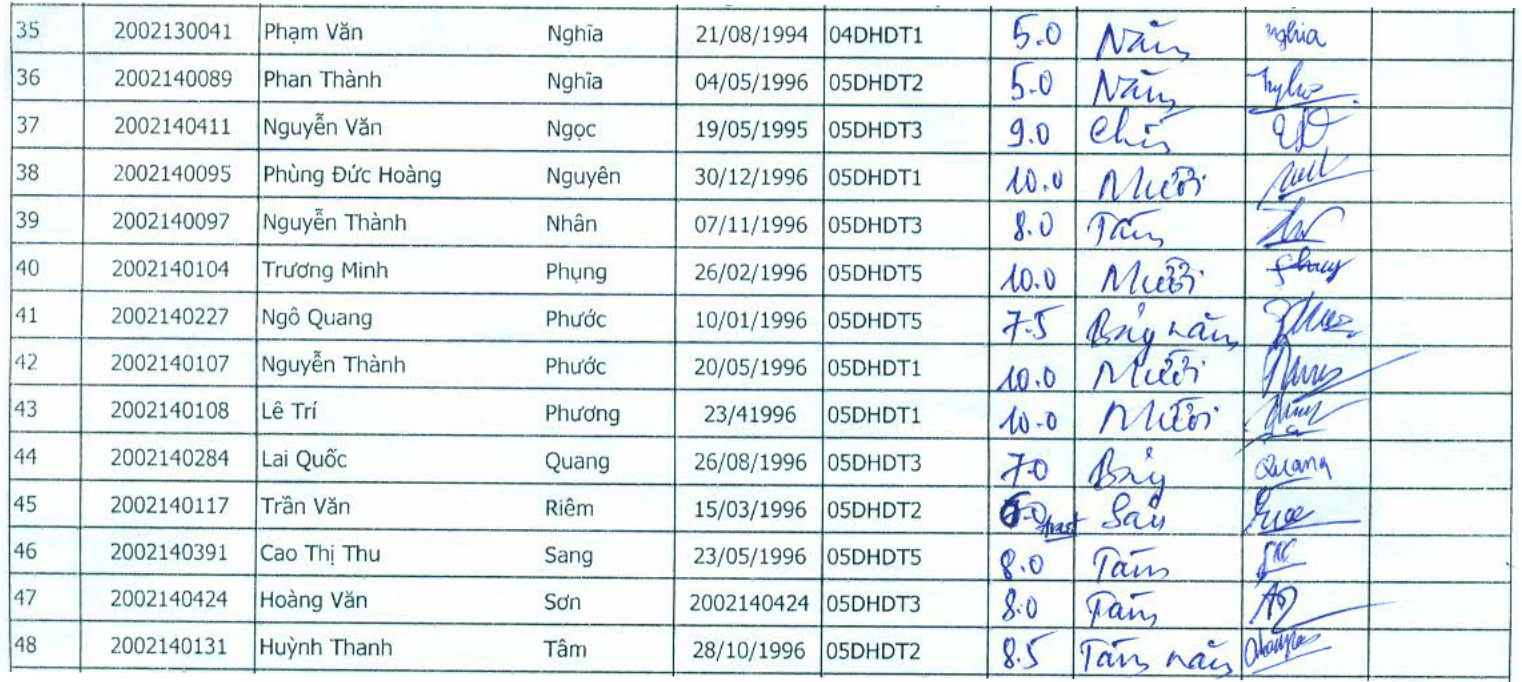 35 2002130041 Phạm Văn Nghĩa 21/08/1994 04DHDT1 5.0 Năm nghia
36 2002140089 Phan Thành Nghĩa 04/05/1996 05DHDT2 5.0 Năm
37 2002140411 Nguyễn Văn Ngọc 19/05/1995 05DHDT3 9.0 Chín
38 2002140095 Phùng Đức Hoàng Nguyên 30/12/1996 05DHDT1 10.0 Mười
39 2002140097 Nguyễn Thành Nhân 07/11/1996 05DHDT3 8.0 Tám
40 2002140104 Trương Minh Phụng 26/02/1996 05DHDT5 10.0 Mười
41 2002140227 Ngô Quang Phước 10/01/1996 05DHDT5 7.5 Bảy năm
42 2002140107 Nguyễn Thành Phước 20/05/1996 05DHDT1 10.0 Mười
43 2002140108 Lê Trí Phương 23/41996 05DHDT1 10.0 Mười
44 2002140284 Lai Quốc Quang 26/08/1996 05DHDT3 7.0 Bảy Quang
45 2002140117 Trần Văn Riêm 15/03/1996 05DHDT2 6.0 Sáu
46 2002140391 Cao Thị Thu Sang 23/05/1996 05DHDT5 8.0 Tám
47 2002140424 Hoàng Văn Sơn 2002140424 05DHDT3 8.0 Tám
48 2002140131 Huỳnh Thanh Tâm 28/10/1996 05DHDT2 8.5 Tám năm